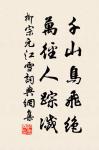 千山鳥飛絕
萬徑人踪滅
柳宗元江雪詞典網集